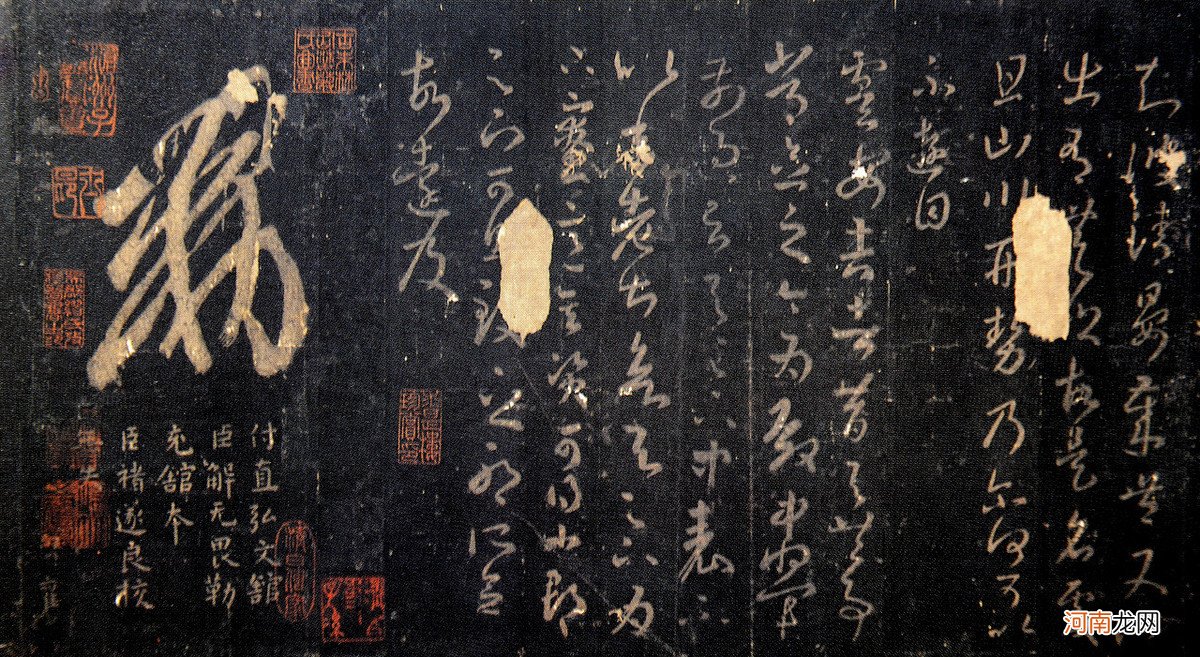 知彼清晏歲豐又
出有無故是名處
且山川形勢乃尔何可以
不遊目
虞安吉者昔與共事
常念之今為殿中將軍
前過云與足下中表不
以年老甚欲與足下為
下寮意其資可得小郡
足下可致之耶所念
故遠及
敕
付直弘文館
臣解无畏勒
充館本
臣褚遂良校
河南龙网